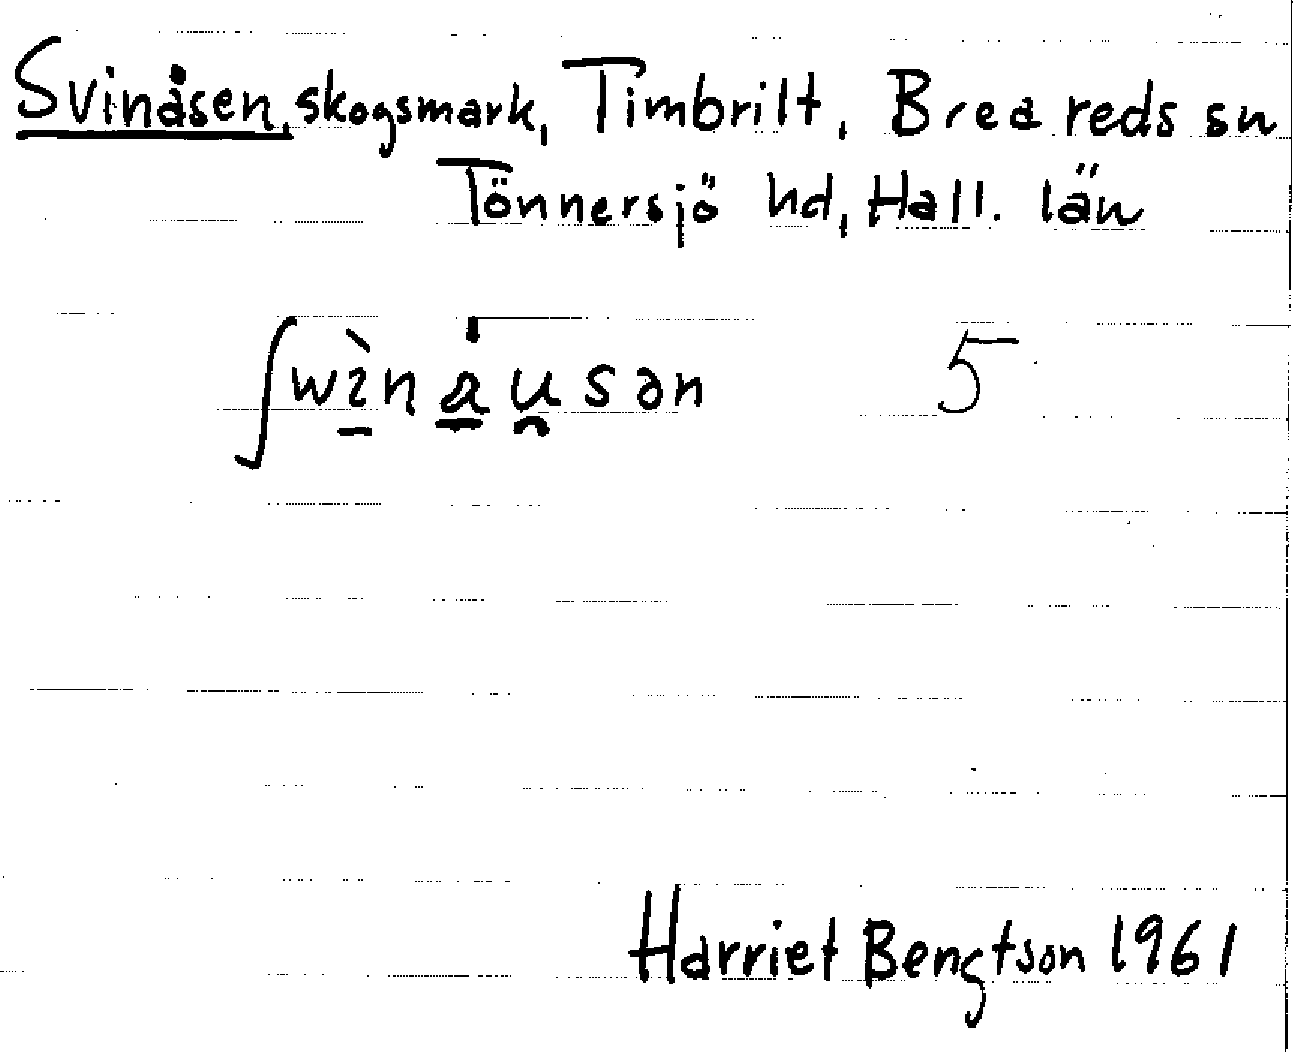 Svinåsen, skogsmark, Timbrilt, Breareds sn
Tönnersjö hd, Hall. län
ʃwɪ̀nạu̯sən 5
Harriet Bengtson 1961